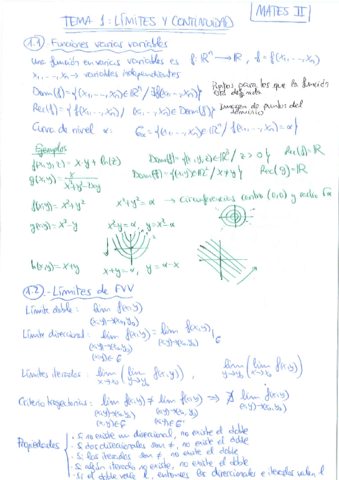 MATES II
TEMA 1: LÍMITES Y CONTINUIDAD
1.1 Funciones varias variables
Una función en varias variables es f: ℝⁿ → ℝ, f = f(x₁,...,xₙ)
x₁,...,xₙ → variables independientes
Dom(f) = {(x₁,...,xₙ) ∈ ℝⁿ / ∃ f(x₁,...,xₙ)} puntos para los que la función está definida
Rec(f) = {f(x₁,...,xₙ) / (x₁,...,xₙ) ∈ Dom(f)} imagen de puntos del dominio
Curva de nivel α: Gα = {(x₁,...,xₙ) ∈ ℝⁿ / f(x₁,...,xₙ) = α}
Ejemplos
f(x,y,z) = x·y + ln(z) Dom(f) = {(x,y,z) ∈ ℝ³ / z > 0} Rec(f) = ℝ
g(x,y) = x / x²+y²-2xy Dom(f) = {(x,y) ∈ ℝ² / x ≠ y} Rec(g) = ℝ
f(x,y) = x²+y² x²+y² = α → circunferencias centro (0,0) y radio √α
g(x,y) = x²-y x²-y = α, y = x²-α
h(x,y) = x+y x+y = α, y = α-x
1.2 - Límites de FVV
Límite doble: lim f(x,y) (x,y)→(x₀,y₀)
Límite direccional: lim f(x,y) = lim f(x,y)|G (x,y)→(x₀,y₀) (x,y)∈G
Límites iterados: lim x→x₀ (lim y→y₀ f(x,y)), lim y→y₀ (lim x→x₀ f(x,y))
Criterio trayectorias: lim f(x,y) ≠ lim f(x,y) ⇒ ∄ lim f(x,y)
(x,y)→(x₀,y₀) (x,y)→(x₀,y₀) (x,y)→(x₀,y₀)
(x,y)∈G (x,y)∈G'
Propiedades
· Si no existe un direccional, no existe el doble
· Si dos direccionales son ≠, no existe el doble
· Si los iterados son ≠, no existe el doble
· Si algún iterado no existe, no existe el doble
· Si el doble vale l, entonces los direccionales e iterados valen l